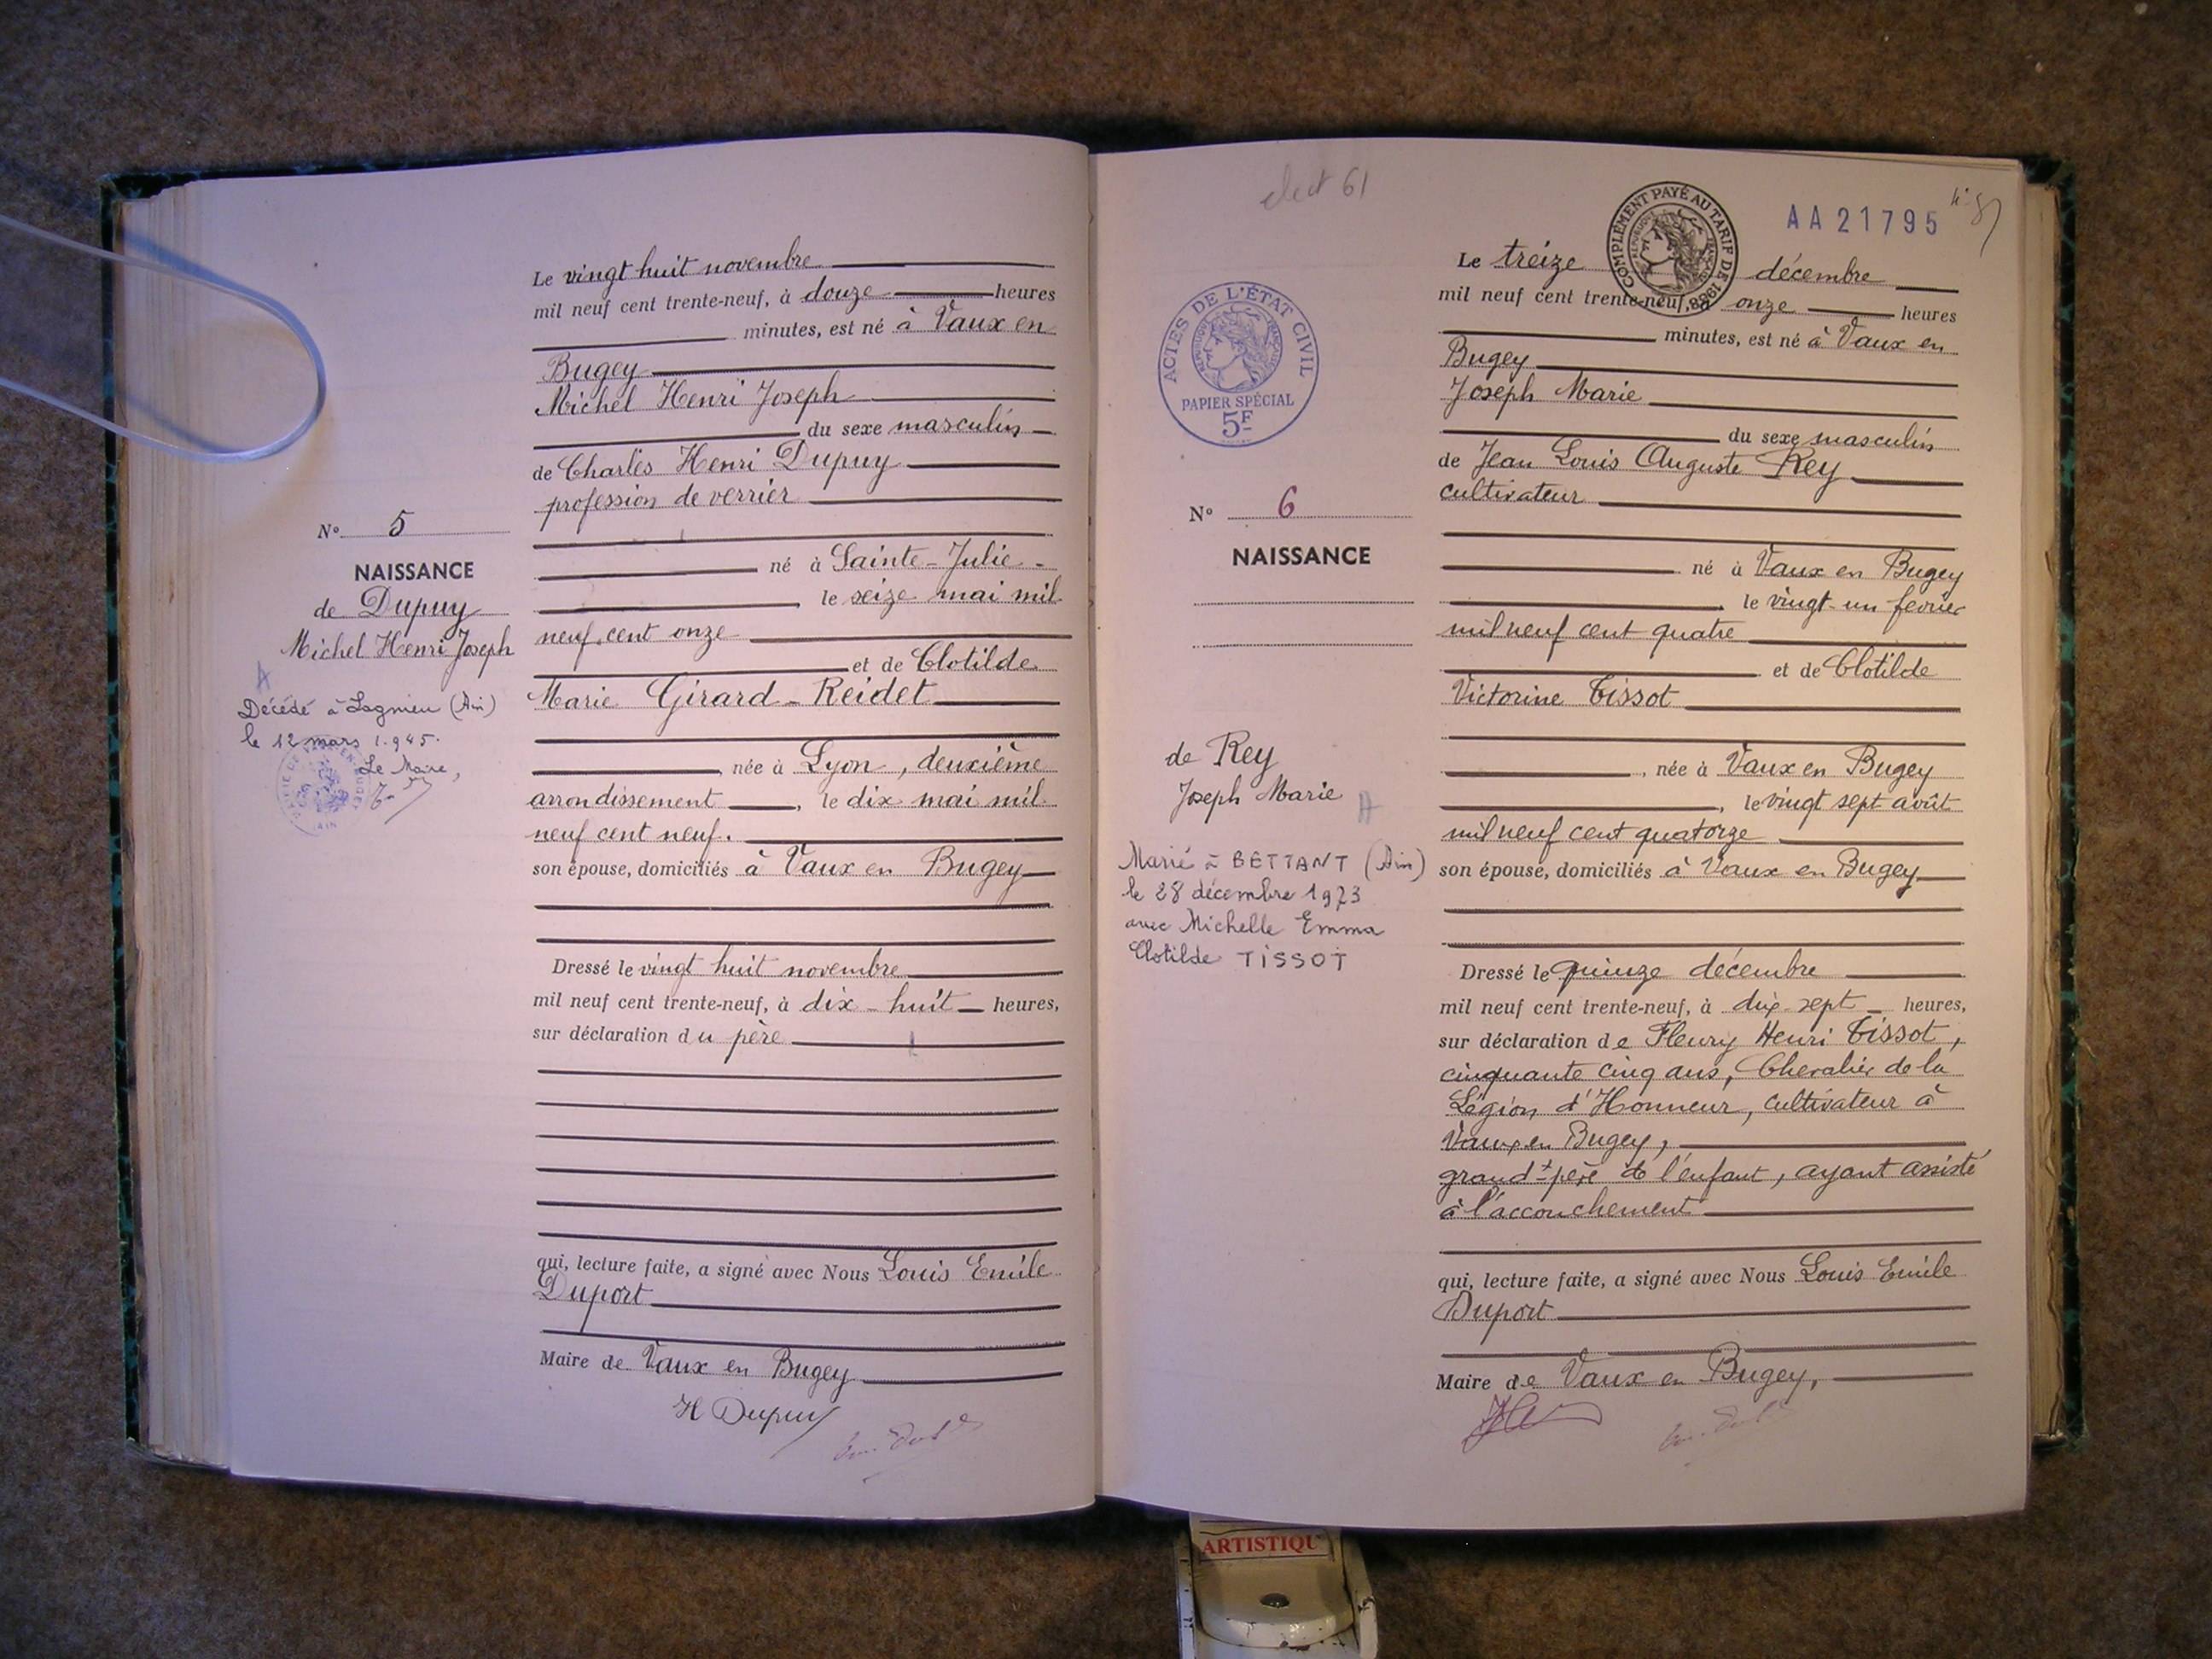 Le vingt huit novembre
mil neuf cent trente-neuf, à douze heures
minutes, est né à Vaux en
Bugey
Michel Henri Joseph
du sexe masculin
de Charles Henri Dupuy
profession de verrier
né à Sainte-Julie
le seize mai mil
neuf cent onze
et de Clotilde
Marie Girard-Reidet
, née à Lyon, deuxième
arrondissement, le dix mai mil
neuf cent neuf.
son épouse, domiciliés à Vaux en Bugey
Dressé le vingt huit novembre
mil neuf cent trente-neuf, à dix-huit heures,
sur déclaration du père
qui, lecture faite, a signé avec Nous Louis Emile
Duport
Maire de Vaux en Bugey
H Dupuy
N° 5
NAISSANCE
de Dupuy
Michel Henri Joseph
A
Décédé à Lagnieu (Ain)
le 12 mars 1.945.
Le Maire,
elect 61
COMPLÉMENT PAYÉ AU TARIF DE 1938
AA 21795
ACTES DE L'ÉTAT CIVIL
RÉPUBLIQUE FRANÇAISE
PAPIER SPÉCIAL
5F
N° 6
NAISSANCE
de Rey
Joseph Marie
A
Marié à BETTANT (Ain)
le 28 décembre 1973
avec Michelle Emma
Clotilde TISSOT
Le treize décembre
mil neuf cent trente-neuf, à onze heures
minutes, est né à Vaux en
Bugey
Joseph Marie
du sexe masculin
de Jean Louis Auguste Rey
cultivateur
né à Vaux en Bugey
le vingt-un fevrier
mil neuf cent quatre
et de Clotilde
Victorine Tissot
, née à Vaux en Bugey
, le vingt sept août
mil neuf cent quatorze
son épouse, domiciliés à Vaux en Bugey
Dressé le quinze décembre
mil neuf cent trente-neuf, à dix-sept heures,
sur déclaration de Fleury Henri Tissot,
cinquante cinq ans, Chevalier de la
Légion d'Honneur, cultivateur à
Vaux en Bugey,
grand-père de l'enfant, ayant assisté
à l'accouchement
qui, lecture faite, a signé avec Nous Louis Emile
Duport
Maire de Vaux en Bugey,
ARTISTIQU